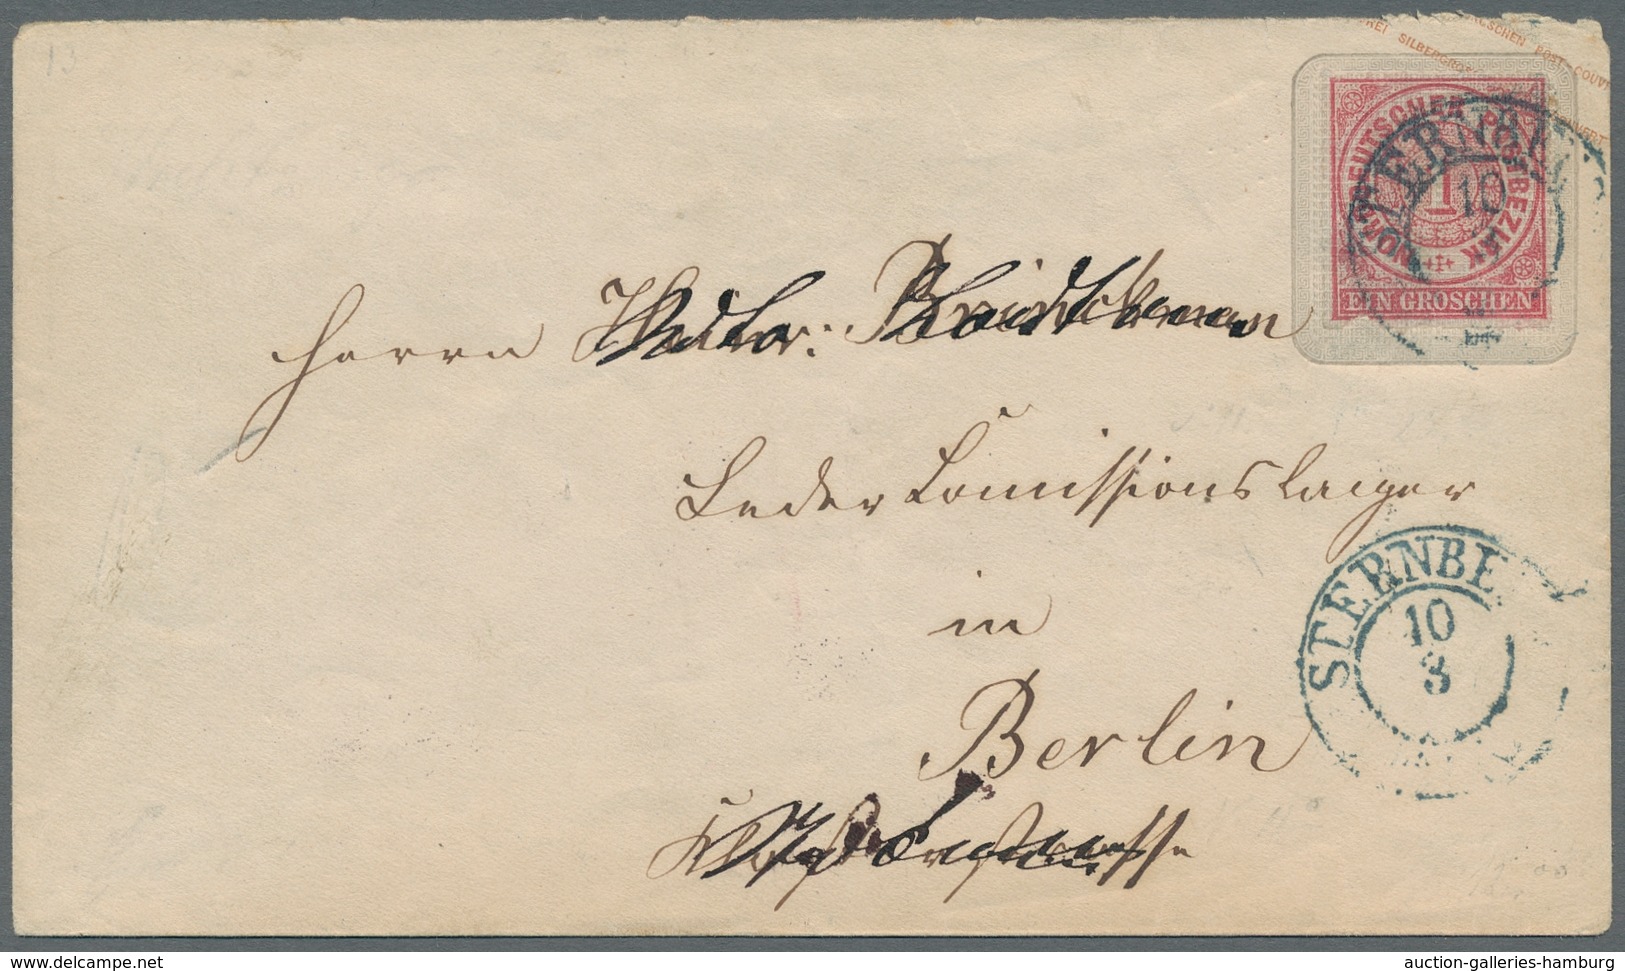 13
REI SILBERGROS
GRESCHEN POST-COUV
NORDDEUTSCHER POSTBEZIRK
1
EIN GROSCHEN
STERNB
10
Herrn
Leder Comissionslager
in
Berlin
STERNBE
10
3
delcampe.net
auction-galleries-hamburg